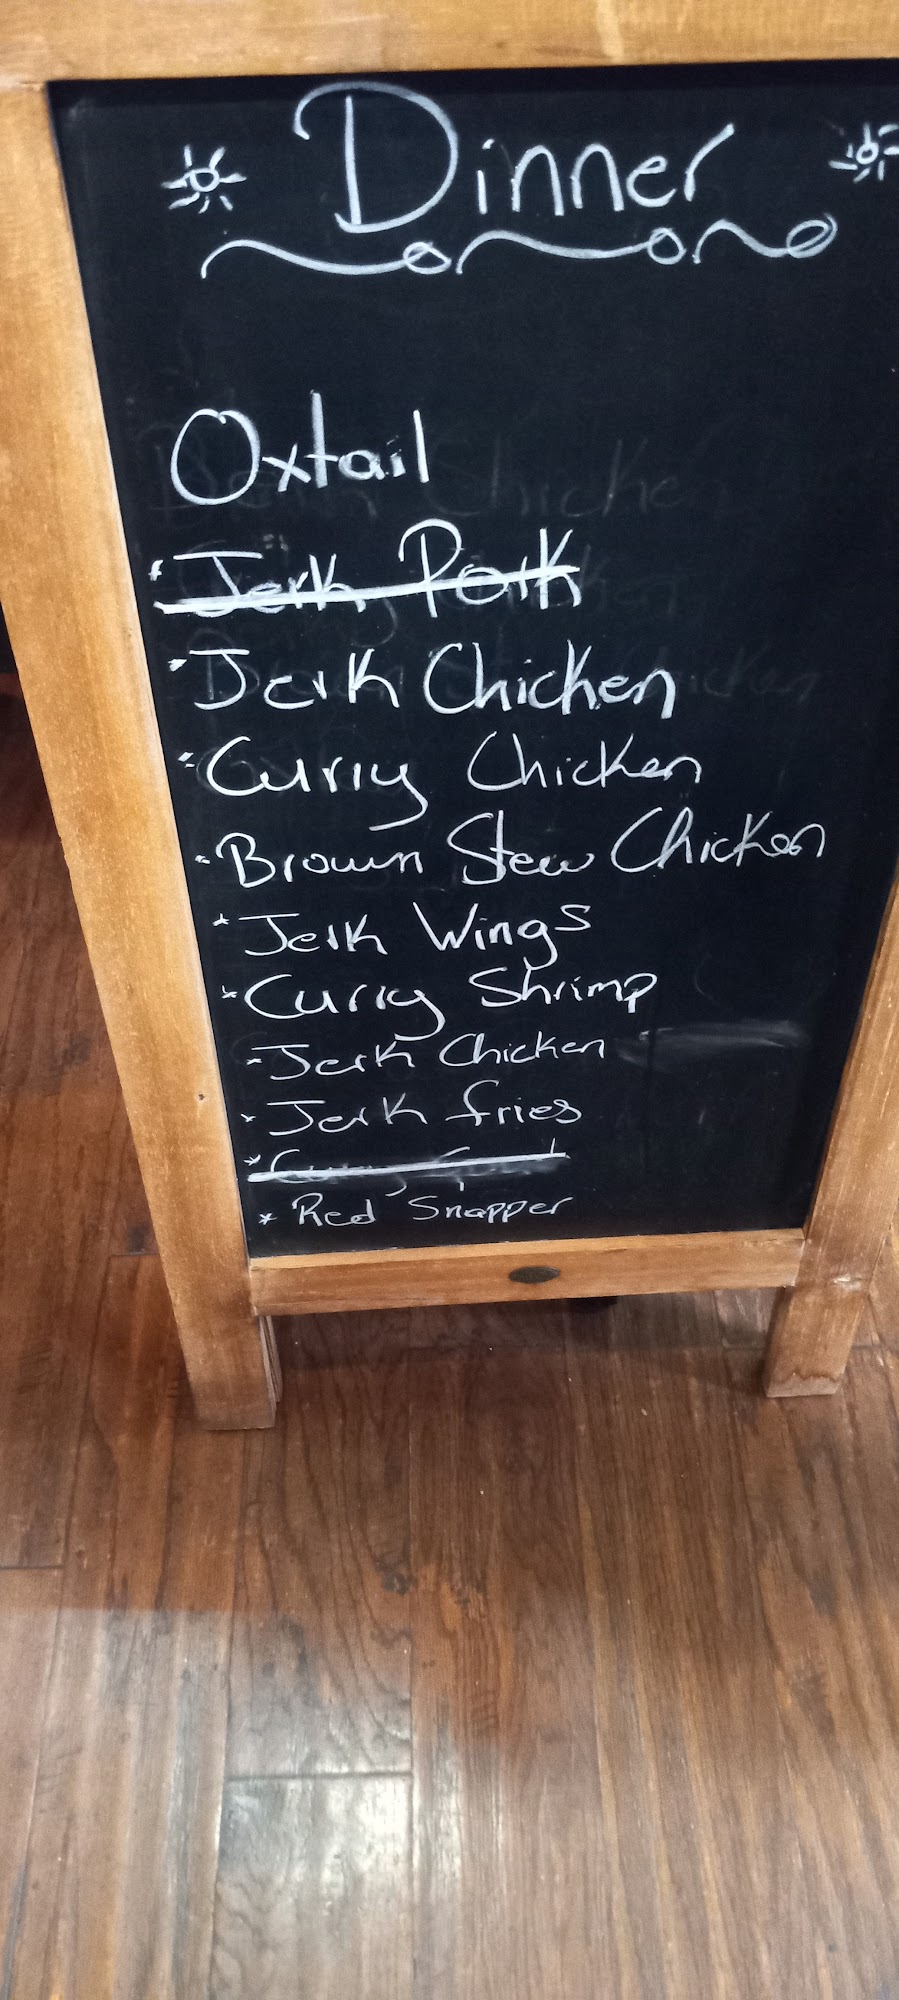 Dinner
Oxtail
Jerk Pork
Jerk Chicken
Curry Chicken
Brown Stew Chicken
Jerk Wings
Curry Shrimp
Jerk Chicken
Jerk fries
Red Snapper